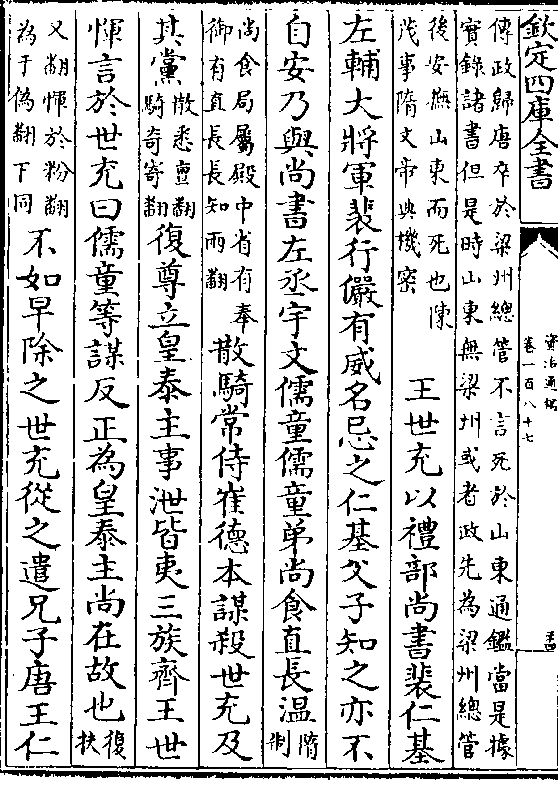 欽定四庫全書
資治通鑑
卷一百八十七
傳政歸唐卒於梁州總管不言死於山東通鑑當是據
實錄諸書但是時山東無梁州或者政先為梁州總管
後安撫山東而死也陳
茂事隋文帝典機密
王世充以禮部尚書裴仁基
左輔大將軍裴行儼有威名忌之仁基父子知之亦不
自安乃與尚書左丞宇文儒童儒童弟尚食直長温
隋
制
尚食局屬殿中省有奉
御有直長長知兩翻
散騎常侍崔德本謀殺世充及
其黨
散悉亶翻
騎奇寄翻
復尊立皇泰主事泄皆夷三族齊王世
惲言於世充曰儒童等謀反正為皇泰主尚在故也
復
扶
又翻惲於粉翻
為于偽翻下同
不如早除之世充從之遣兄子唐王仁